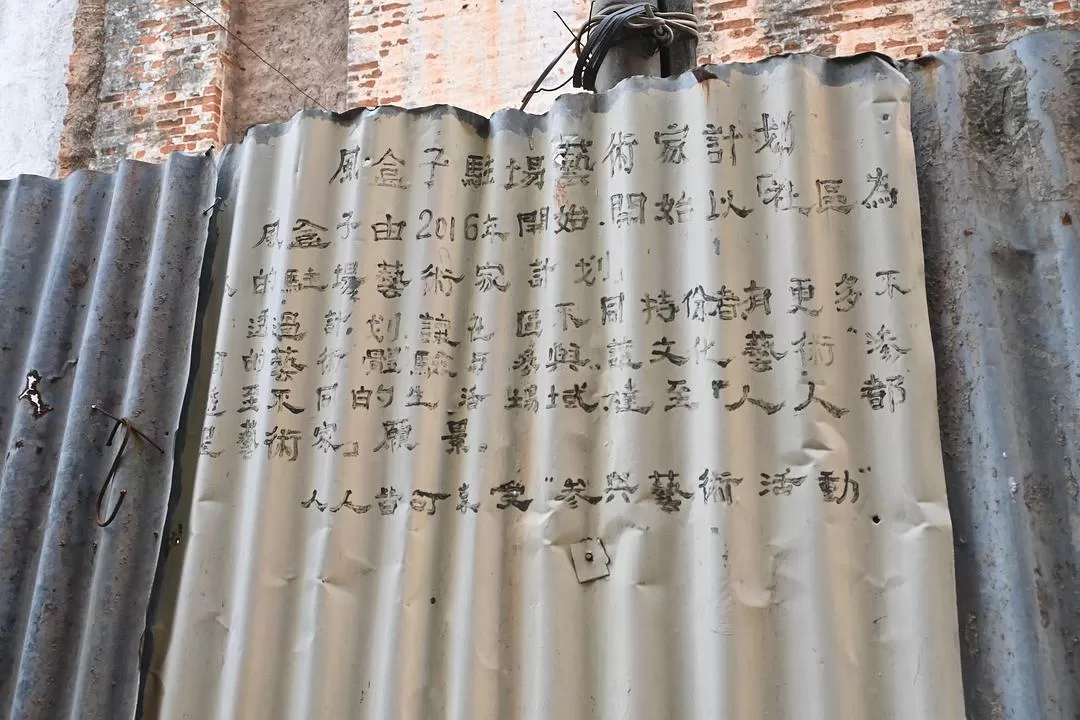 風盒子駐場藝術家計划
風盒子由2016年開始.開始以「社區為
的駐場藝術家計划
透過計划讓在區不同持份者有更多不
的藝術體驗可參與.讓文化藝術滲
至不同的生活場域.達至「人人都
是藝術家」願景。
人人皆可享受"参與藝術活動"